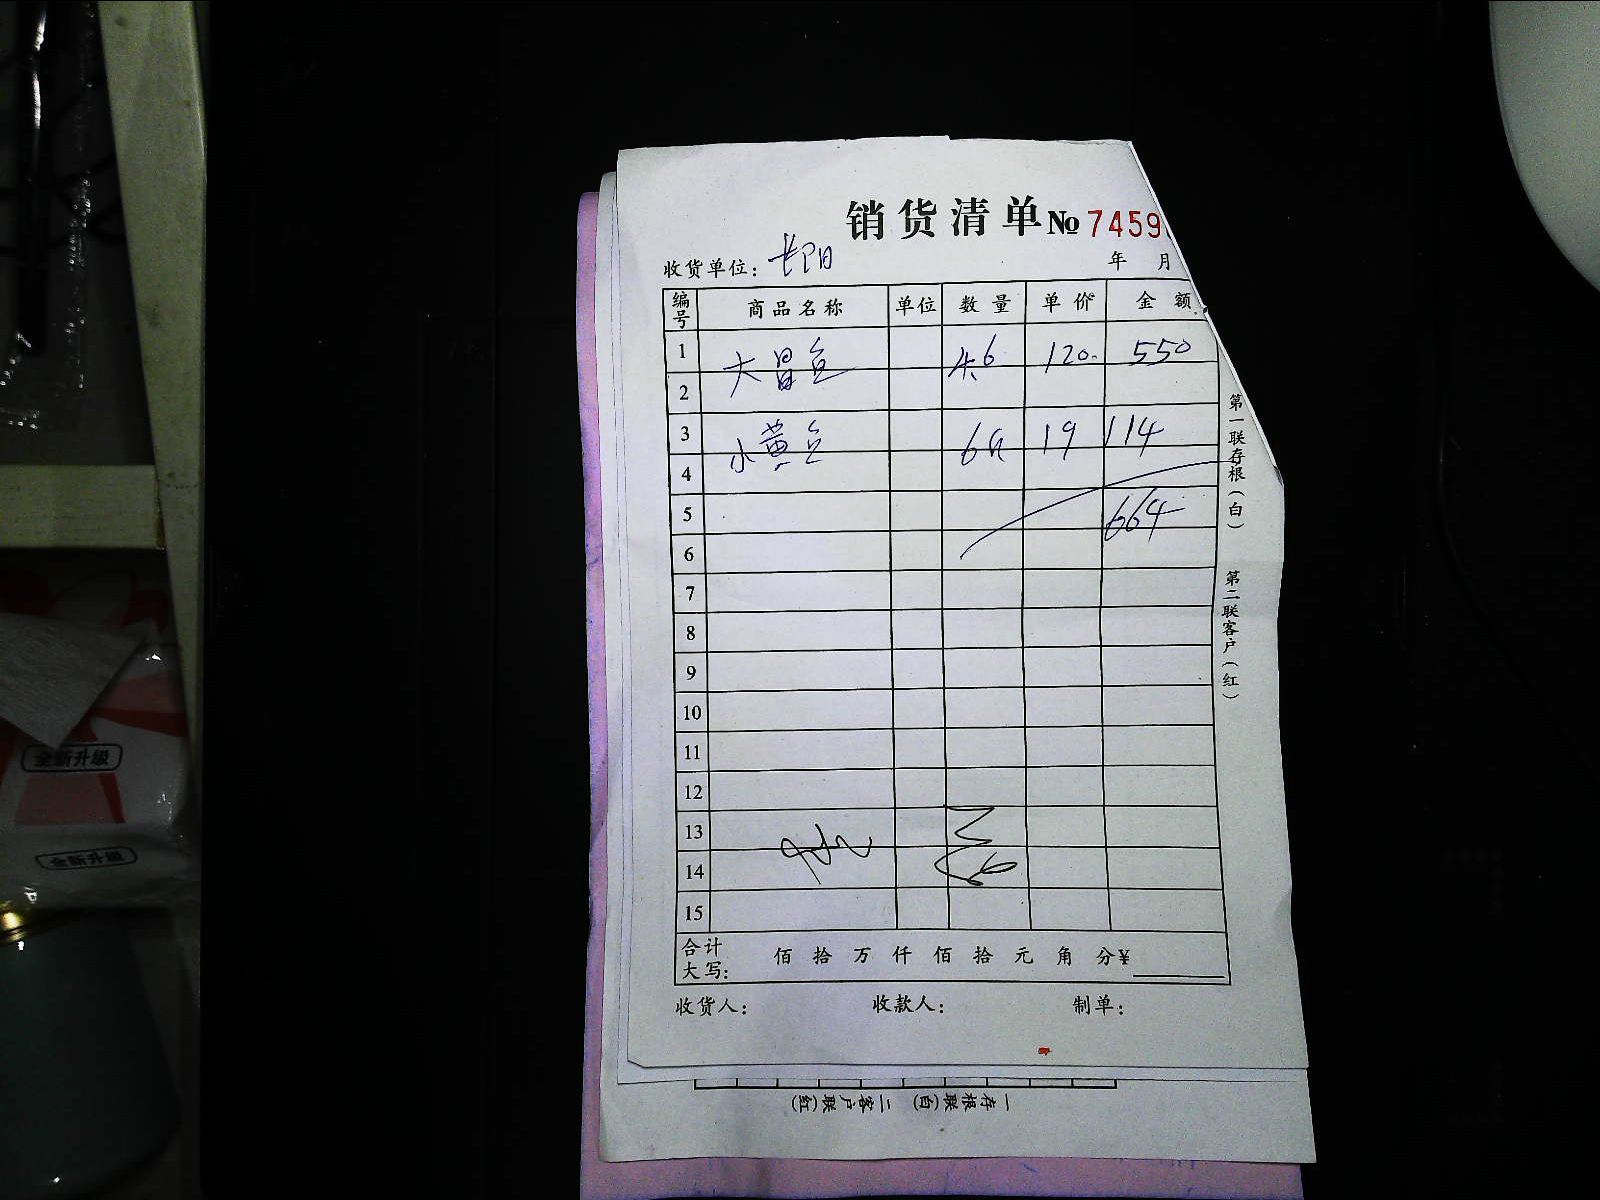 销货清单 № 7459
收货单位： 长阳 年 月
编号 商品名称 单位 数量 单价 金额
1 大昌鱼 4.6 120 550
2
3 小黄鱼 6斤 19 114
4
5 664
6
7
8
9
10
11
12
13
14
15
合计大写： 佰 拾 万 仟 佰 拾 元 角 分 ¥
收货人： 收款人： 制单：
第一联存根（白） 第二联客户（红）
一存根联(白) 二客户联(红)
全新升级
全新升级